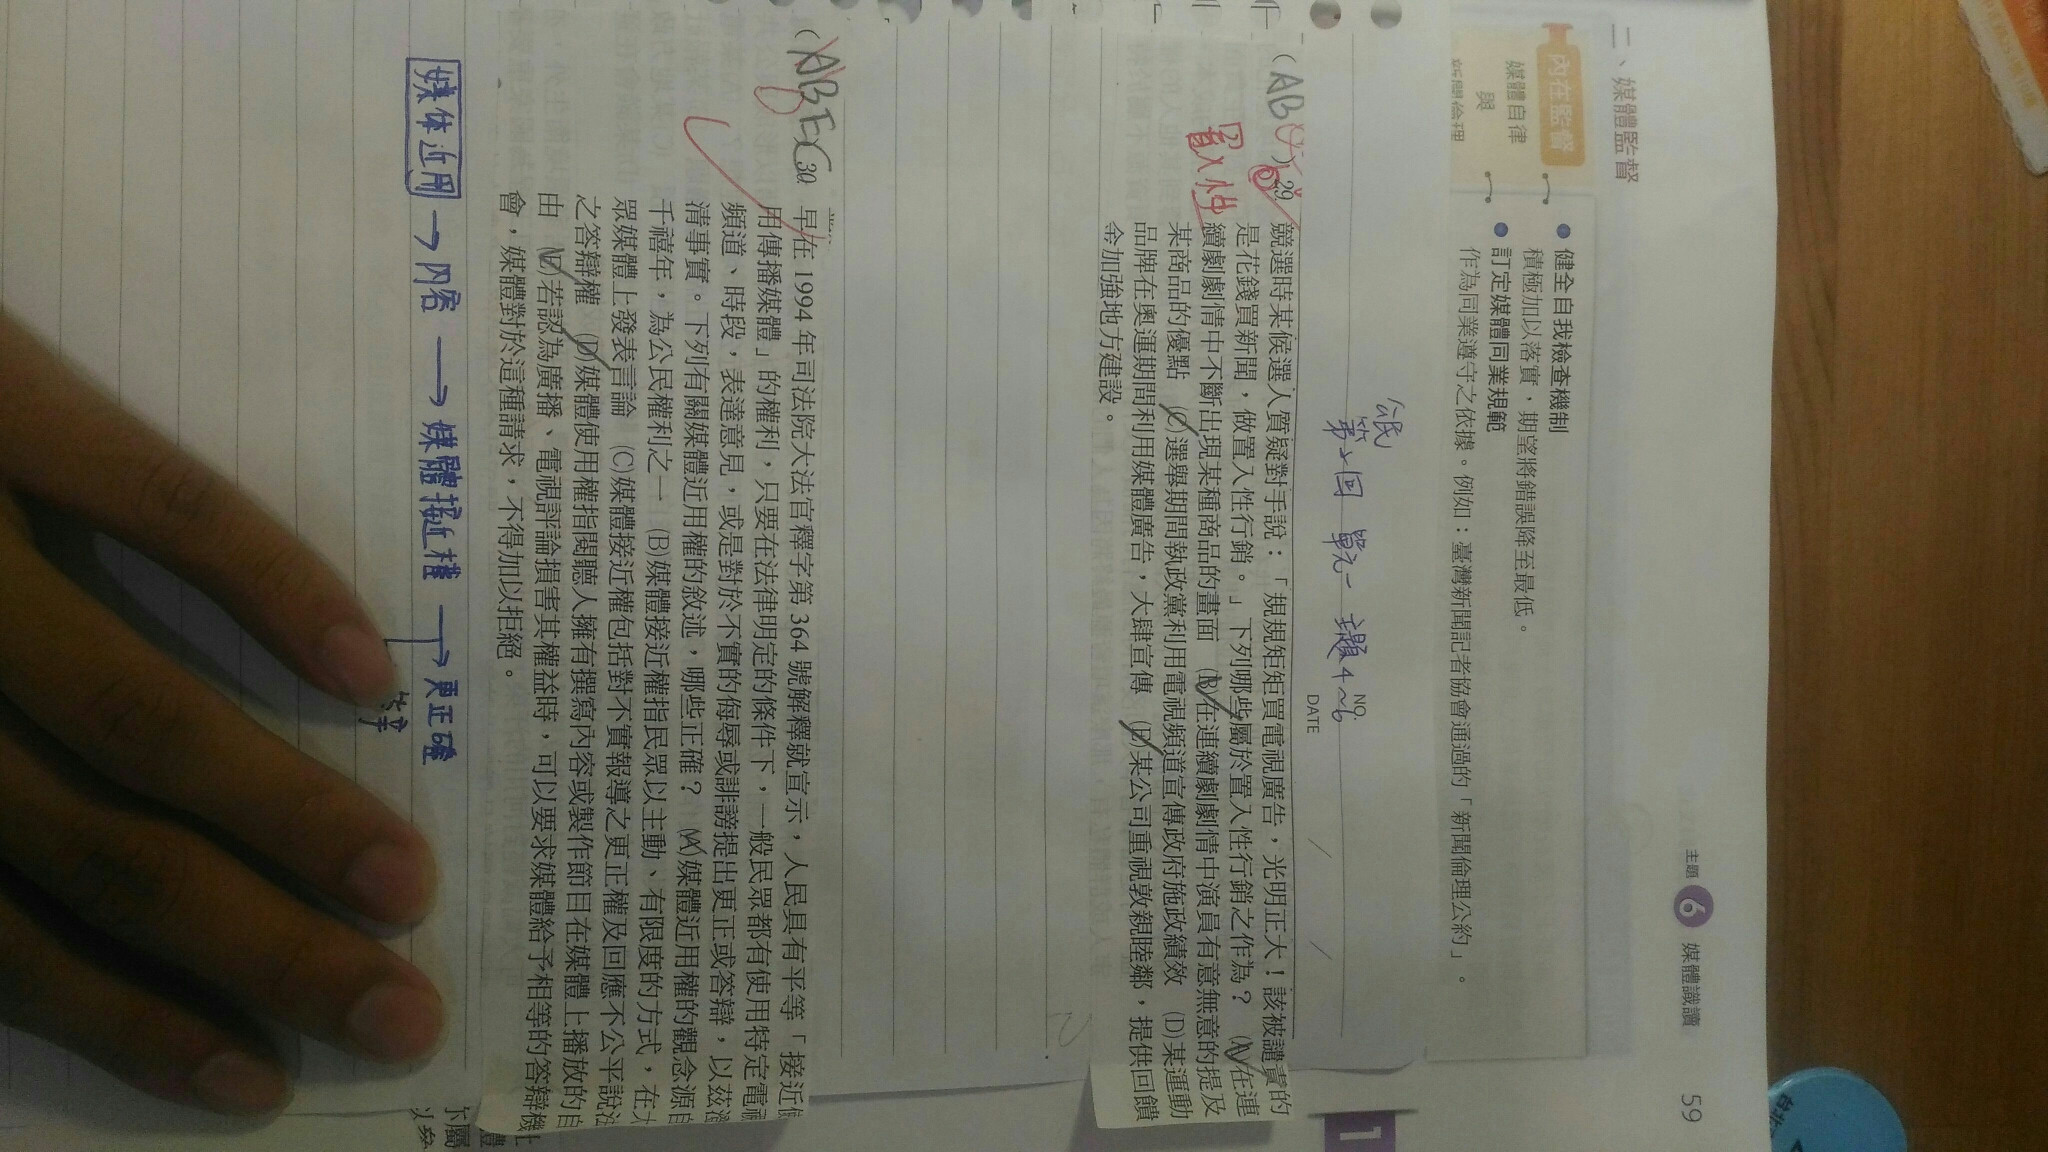 主題 6 媒體識讀 59
二、媒體監督
內在監督
媒體自律
與
新聞倫理
● 健全自我檢查機制
積極加以落實，期望將錯誤降至最低。
● 訂定媒體同業規範
作為同業遵守之依據。例如：臺灣新聞記者協會通過的「新聞倫理公約」。
公民
NO.
DATE
置入性
29.競選時某候選人質疑對手說：「規規矩矩買電視廣告，光明正大！該被譴責的
是花錢買新聞，做置入性行銷。」下列哪些屬於置入性行銷之作為？ (A)在連
續劇劇情中不斷出現某種商品的畫面 (B)在連續劇劇情中演員有意無意的提及
某商品的優點 (C)選舉期間執政黨利用電視頻道宣傳政府施政績效 (D)某運動
品牌在奧運期間利用媒體廣告，大肆宣傳 (E)某公司重視敦親睦鄰，提供回饋
金加強地方建設。
30.早在 1994 年司法院大法官釋字第 364 號解釋就宣示，人民具有平等「接近使
用傳播媒體」的權利，只要在法律明定的條件下，一般民眾都有使用特定電視
頻道、時段，表達意見，或是對於不實的侮辱或誹謗提出更正或答辯，以茲澄
清事實。下列有關媒體近用權的敘述，哪些正確？ (A)媒體近用權的觀念源自
千禧年，為公民權利之一 (B)媒體接近權指民眾以主動、有限度的方式，在大
眾媒體上發表言論 (C)媒體接近權包括對不實報導之更正權及回應不公平說法
之答辯權 (D)媒體使用權指閱聽人擁有撰寫內容或製作節目在媒體上播放的自
由 (E)若認為廣播、電視評論損害其權益時，可以要求媒體給予相等的答辯機
會，媒體對於這種請求，不得加以拒絕。
媒体近用 → 內容 → 媒體接近權 → 更正權
1